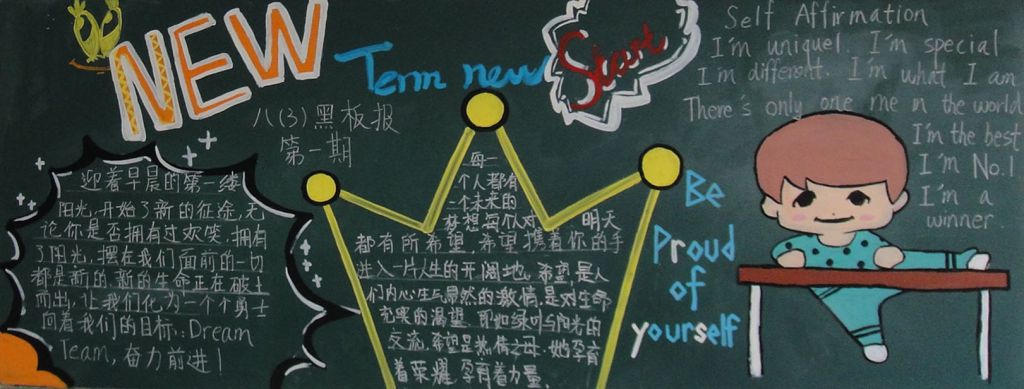 NEW
Term new
Start
八(3)黑板报
第一期
迎着早晨的第一缕
阳光,开始了新的征途,无
论你是否拥有过欢笑,拥有
了阳光,摆在我们面前的一切
都是新的,新的生命正在破土
而出,让我们化为一个个勇士
向着我们的目标..Dream
Team,奋力前进!
每一
个人都有
一个未来的
梦想,每个对明天
都有所希望,希望携着你的手
进入一片人生的开阔地,希望是人
们内心生气勃然的激情,是对生命
充盈的渴望,即如绿叶与阳光的
交流,希望是热情之母,她孕育
着荣耀,孕育着力量、
Be
Proud
of
yourself
Self Affirmation
I'm unique!. I'm special
I'm different. I'm what I am
There's only one me in the world
I'm the best
I'm No.1
I'm a
winner.